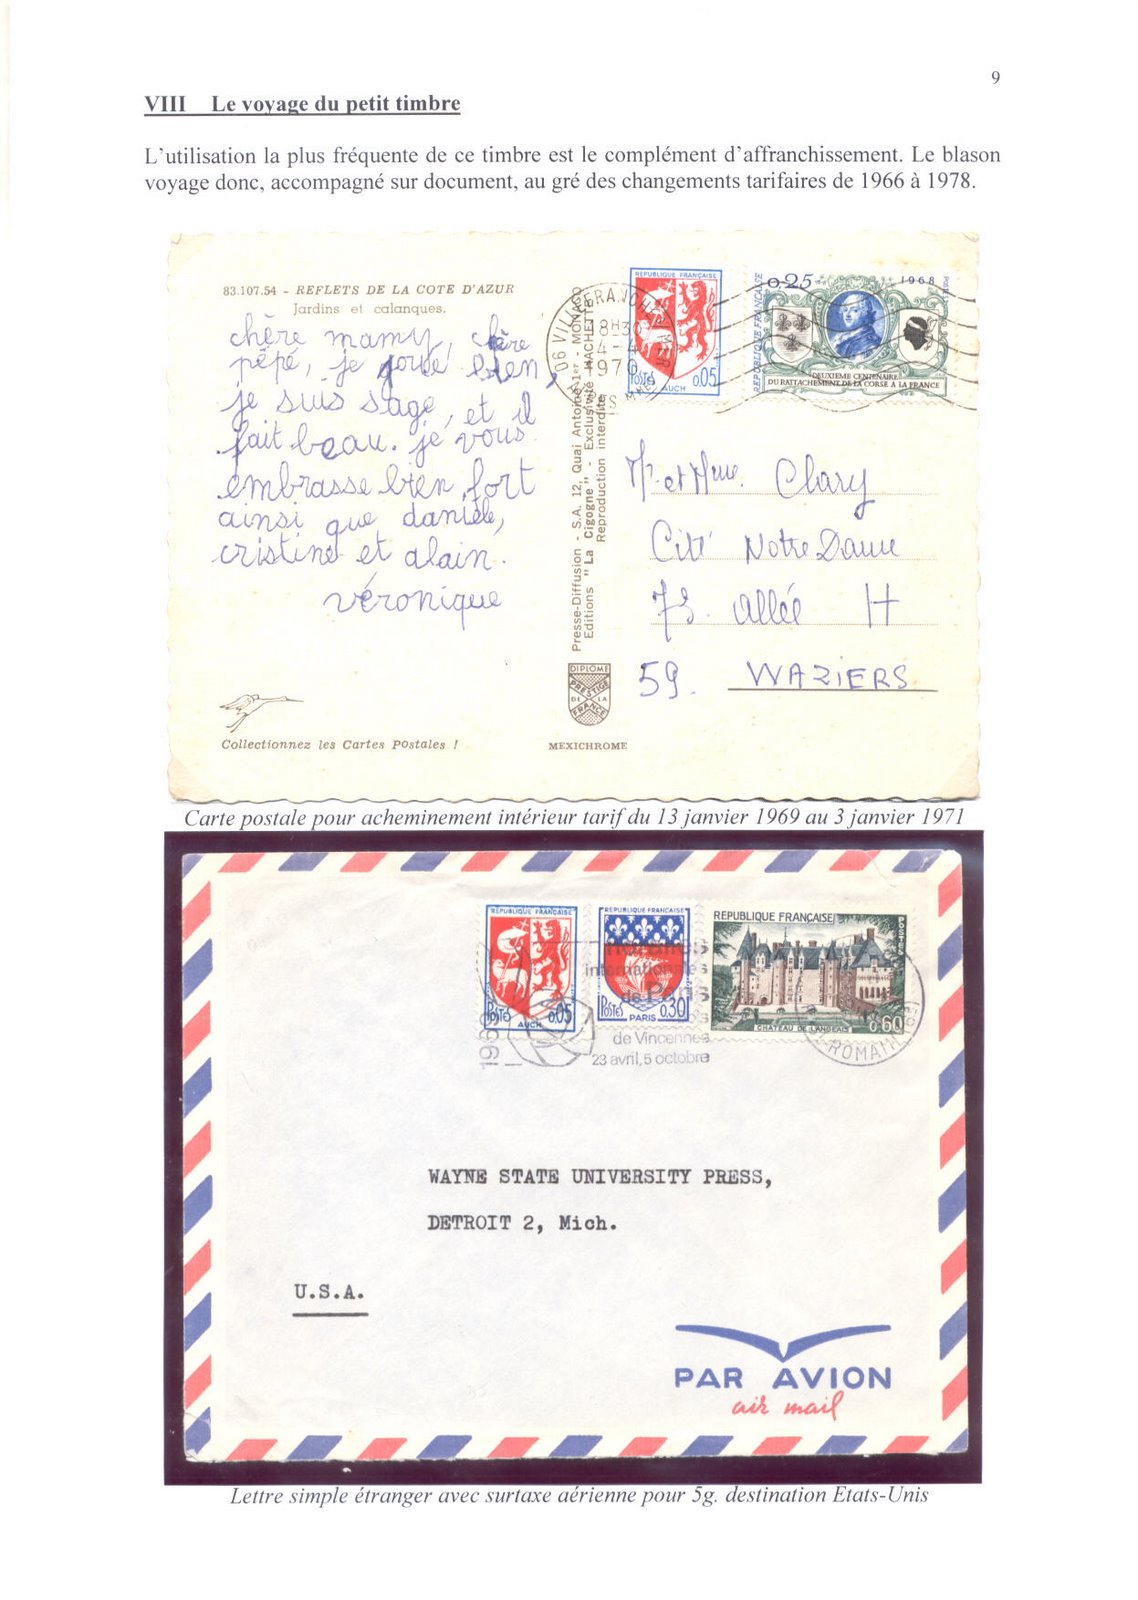 9
VIII Le voyage du petit timbre
L'utilisation la plus fréquente de ce timbre est le complément d'affranchissement. Le blason
voyage donc, accompagné sur document, au gré des changements tarifaires de 1966 à 1978.
83.107.54 - REFLETS DE LA COTE D'AZUR
Jardins et calanques.
chère mamy, chère
pépé, je joue bien,
je suis sage, et il
fait beau. je vous
embrasse bien fort
ainsi que danièle,
cristine et alain.
véronique
Collectionnez les Cartes Postales !
Presse-Diffusion - S.A. 12, Quai Antoine 1er - MONACO
Editions "La Cigogne" - Exclusivité HACHETTE
Reproduction interdite
DIPLOME
PRESTIGE
DE LA
FRANCE
MEXICHROME
06 VILLEFRANCHE S MER
18H30
4-4
1970
REPUBLIQUE FRANÇAISE
POSTES 0,05
AUCH
REPUBLIQUE FRANÇAISE
0,25
1968
POSTES
DEUXIEME CENTENAIRE
DU RATTACHEMENT DE LA CORSE A LA FRANCE
Mr et Mme Clary
Cité Notre Dame
73 allée H
59. WAZIERS
Carte postale pour acheminement intérieur tarif du 13 janvier 1969 au 3 janvier 1971
REPUBLIQUE FRANÇAISE
POSTES 0,05
AUCH
REPUBLIQUE FRANÇAISE
POSTES 0,30
PARIS
REPUBLIQUE FRANÇAISE
POSTES
CHATEAU DE LANGEAIS
0,60
internationales
de Paris
de Vincennes
23 avril, 5 octobre
ROMAIN
WAYNE STATE UNIVERSITY PRESS,
DETROIT 2, Mich.
U.S.A.
PAR AVION
air mail
Lettre simple étranger avec surtaxe aérienne pour 5g. destination Etats-Unis